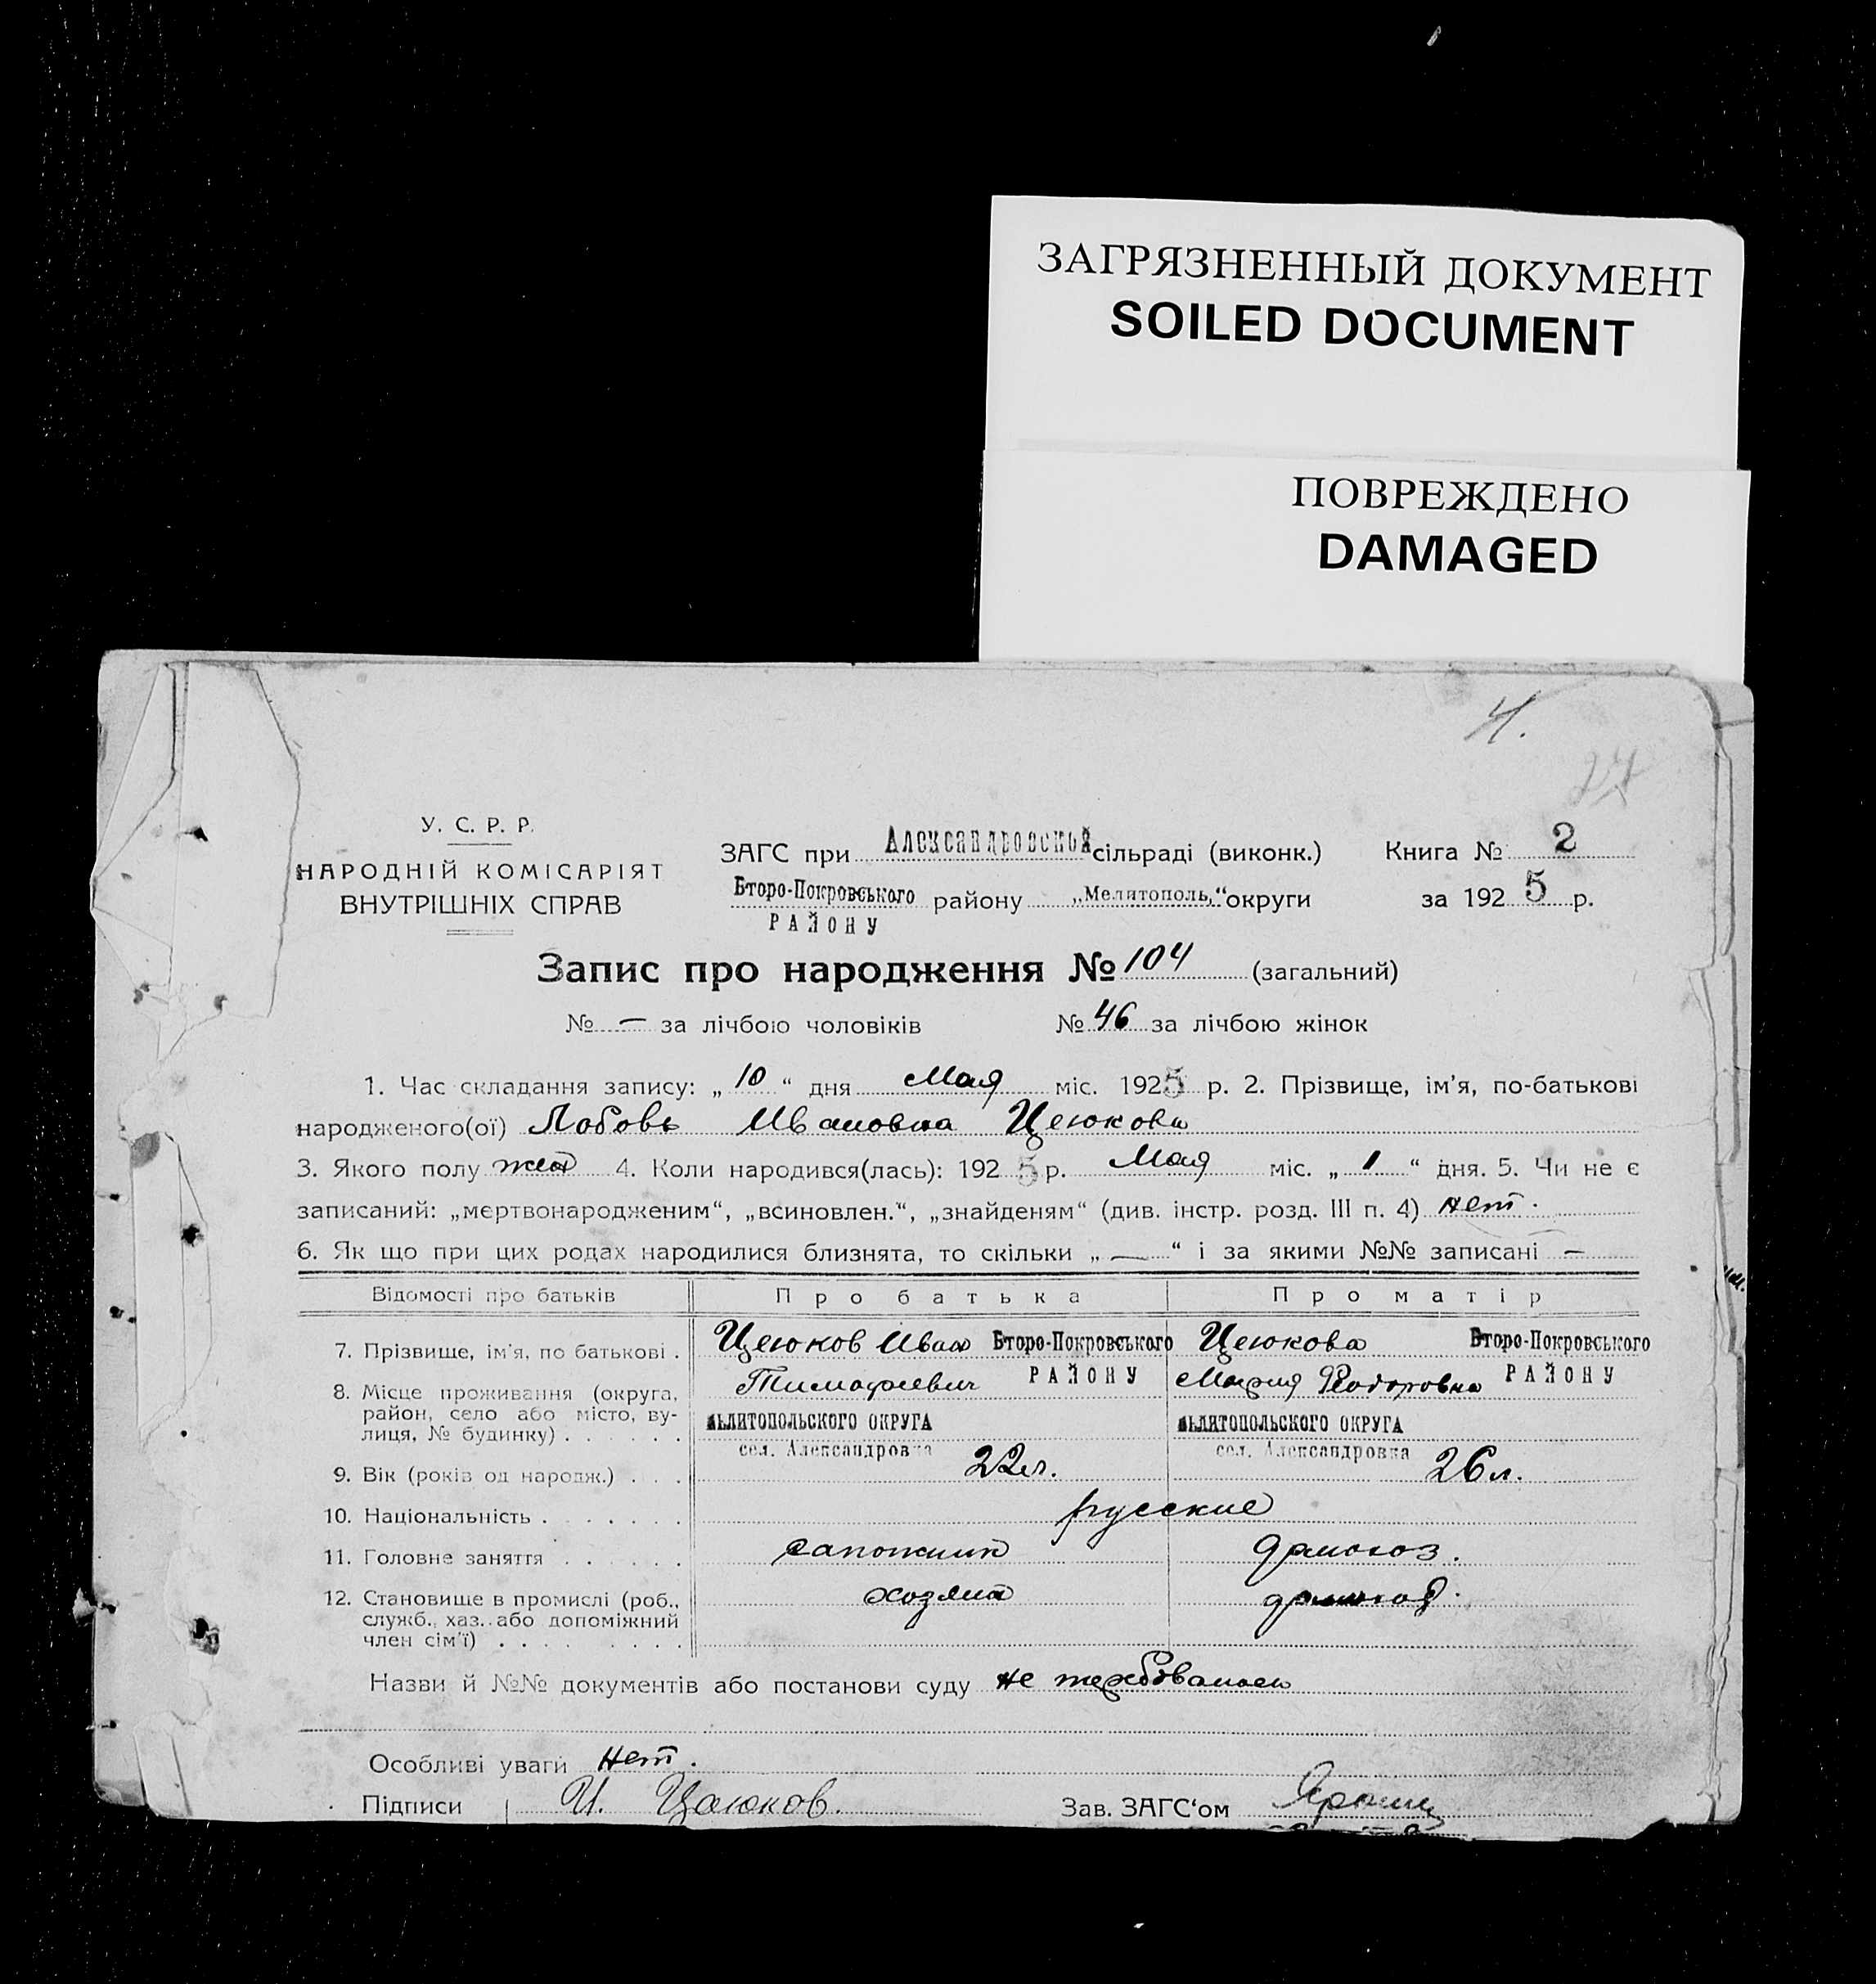 ЗАГРЯЗНЕННЫЙ ДОКУМЕНТ
SOILED DOCUMENT
ПОВРЕЖДЕНО
DAMAGED
4.
24
У. С. Р. Р.
НАРОДНІЙ КОМІСАРІЯТ
ВНУТРІШНІХ СПРАВ
ЗАГС при Александровской сільраді (виконк.) Книга № 2
Второ-Покровського району „Мелитополь„“ округи за 1925 р.
РАЙОНУ
Запис про народження № 104 (загальний)
№ — за лічбою чоловіків № 46 за лічбою жінок
1. Час складання запису: „10“ дня Мая міс. 1925 р. 2. Прізвище, ім’я, по-батькові
народженого(ої) Любовь Ивановна Цеюкова
3. Якого полу жен 4. Коли народився(лась): 1925 р. Мая міс. „1“ дня. 5. Чи не є
записаний: „мертвонародженим“, „всиновлен.“, „знайденям“ (див. інстр. розд. III п. 4) нет.
6. Як що при цих родах народилися близнята, то скільки „—“ і за якими №№ записані —
Відомості про батьків Про батька Про матір
7. Прізвище, ім’я, по батькові . Цеюков Иван Второ-Покровського Цеюкова Второ-Покровського
8. Місце проживання (округа, Тимофеевич РАЙОНУ Мария Феодоровна РАЙОНУ
район, село або місто, ву- МЕЛИТОПОЛЬСКОГО ОКРУГА МЕЛИТОПОЛЬСКОГО ОКРУГА
лиця, № будинку) . . . . . . сел. Александровка сел. Александровка
9. Вік (років од народж.) . . . 22 г. 26 л.
10. Національність . . . . . . . русские
11. Головне заняття . . . . . сапожник домохоз.
12. Становище в промислі (роб., хозяин домохоз.
служб., хаз. або допоміжний
член сім’ї) . . . . . . . .
Назви й №№ документів або постанови суду не требовалось
Особливі уваги нет.
Підписи И. Цаюков. Зав. ЗАГС‘ом